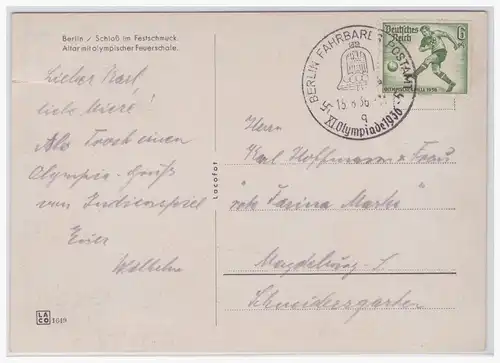 Berlin / Schloß im Festschmuck.
Altar mit olympischer Feuerschale.
Lieber Karl,
liebe Miere!
Als Trost einen
Olympia-Gruß
vom Endspiel
Euer
Wilhelm
LACO 1049
Lacofot
BERLIN FAHRBARES POSTAMT
13.8.36
q
XI. Olympiade 1936
Deutsches Reich
6
OLYMPISCHE SPIELE 1936
Herrn
Karl Hoffmann u Frau
"rote Farina Marke"
Magdeburg-
Schneidersgarten